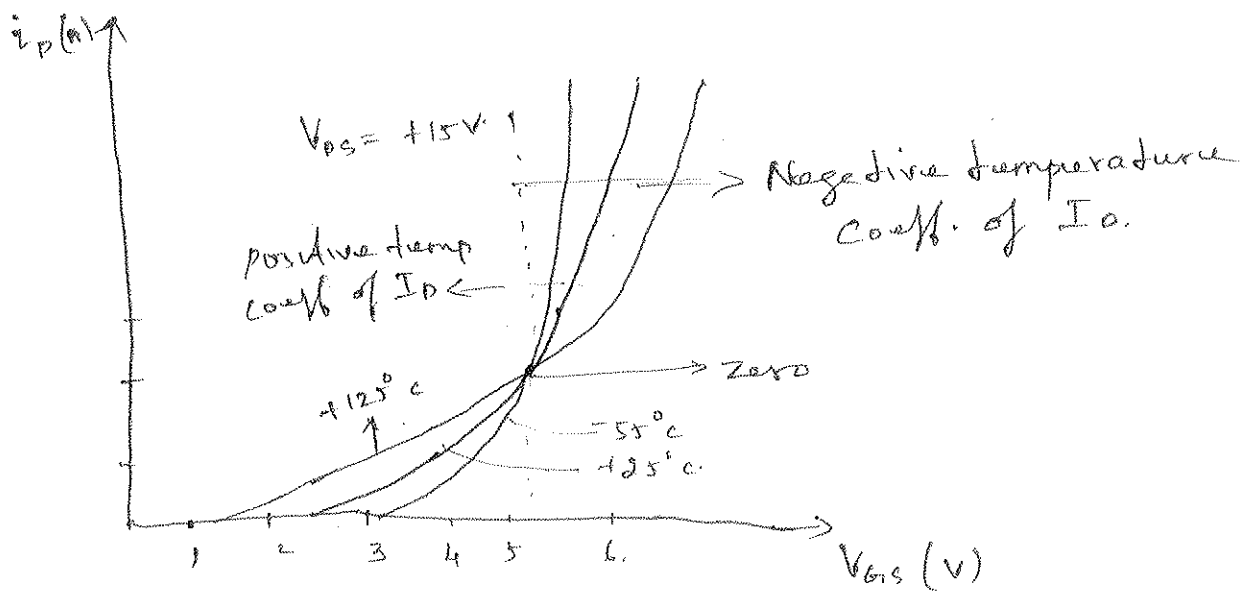 i_D(A)
V_DS = +15V
Negative temperature
Coeff. of I_D.
positive temp
coeff of I_D
Zero
+125°C
-55°C
+25°C.
1 2 3 4 5 6.
V_GS (V)